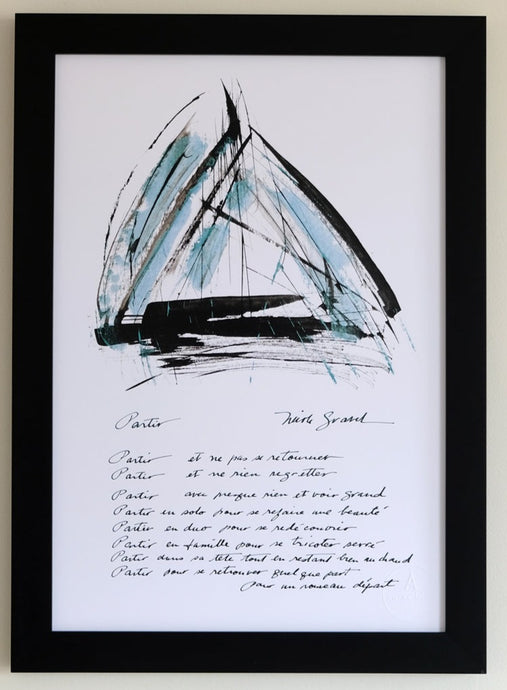 Partir Nicole Grand
Partir et ne pas se retourner
Partir et ne rien regretter
Partir avec presque rien et voir grand
Partir en solo pour se refaire une beauté
Partir en duo pour se redécouvrir
Partir en famille pour se tricoter serré
Partir dans sa tête tout en restant bien au chaud
Partir pour se retrouver quelque part
pour un nouveau départ